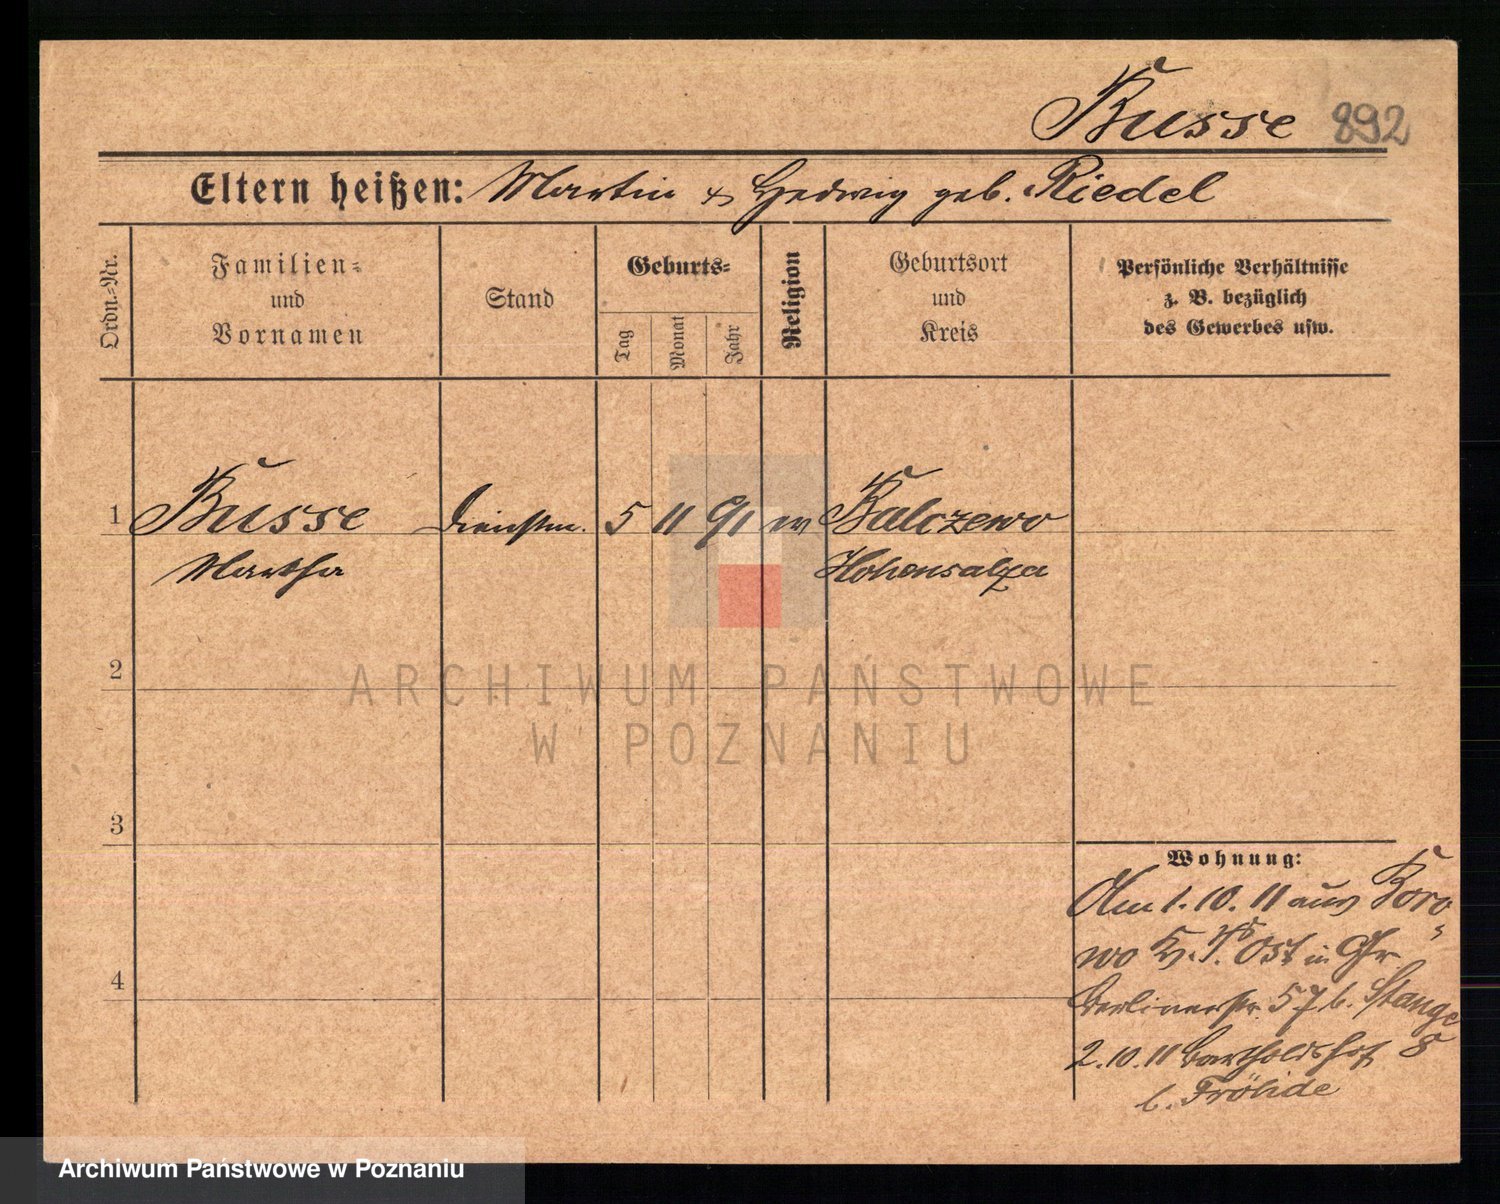 Busse 892
Eltern heißen: Martin & Hedwig geb. Riedel
Ordn.-Nr.
Familien-
und
Vornamen
Stand
Geburts-
Tag
Monat
Jahr
Religion
Geburtsort
und
Kreis
Persönliche Verhältnisse
z. B. bezüglich
des Gewerbes usw.
1 Busse Dienstm. 5 11 91 ev Balczewo
Martha Hohensalza
2
ARCHIWUM PAŃSTWOWE
W POZNANIU
3
Wohnung:
Am 1. 10. 11 aus
wo Ost in
4
Berlinerstr. 57 b. Stange
2. 10. 11 Bartholdshof 8
b.
Archiwum Państwowe w Poznaniu